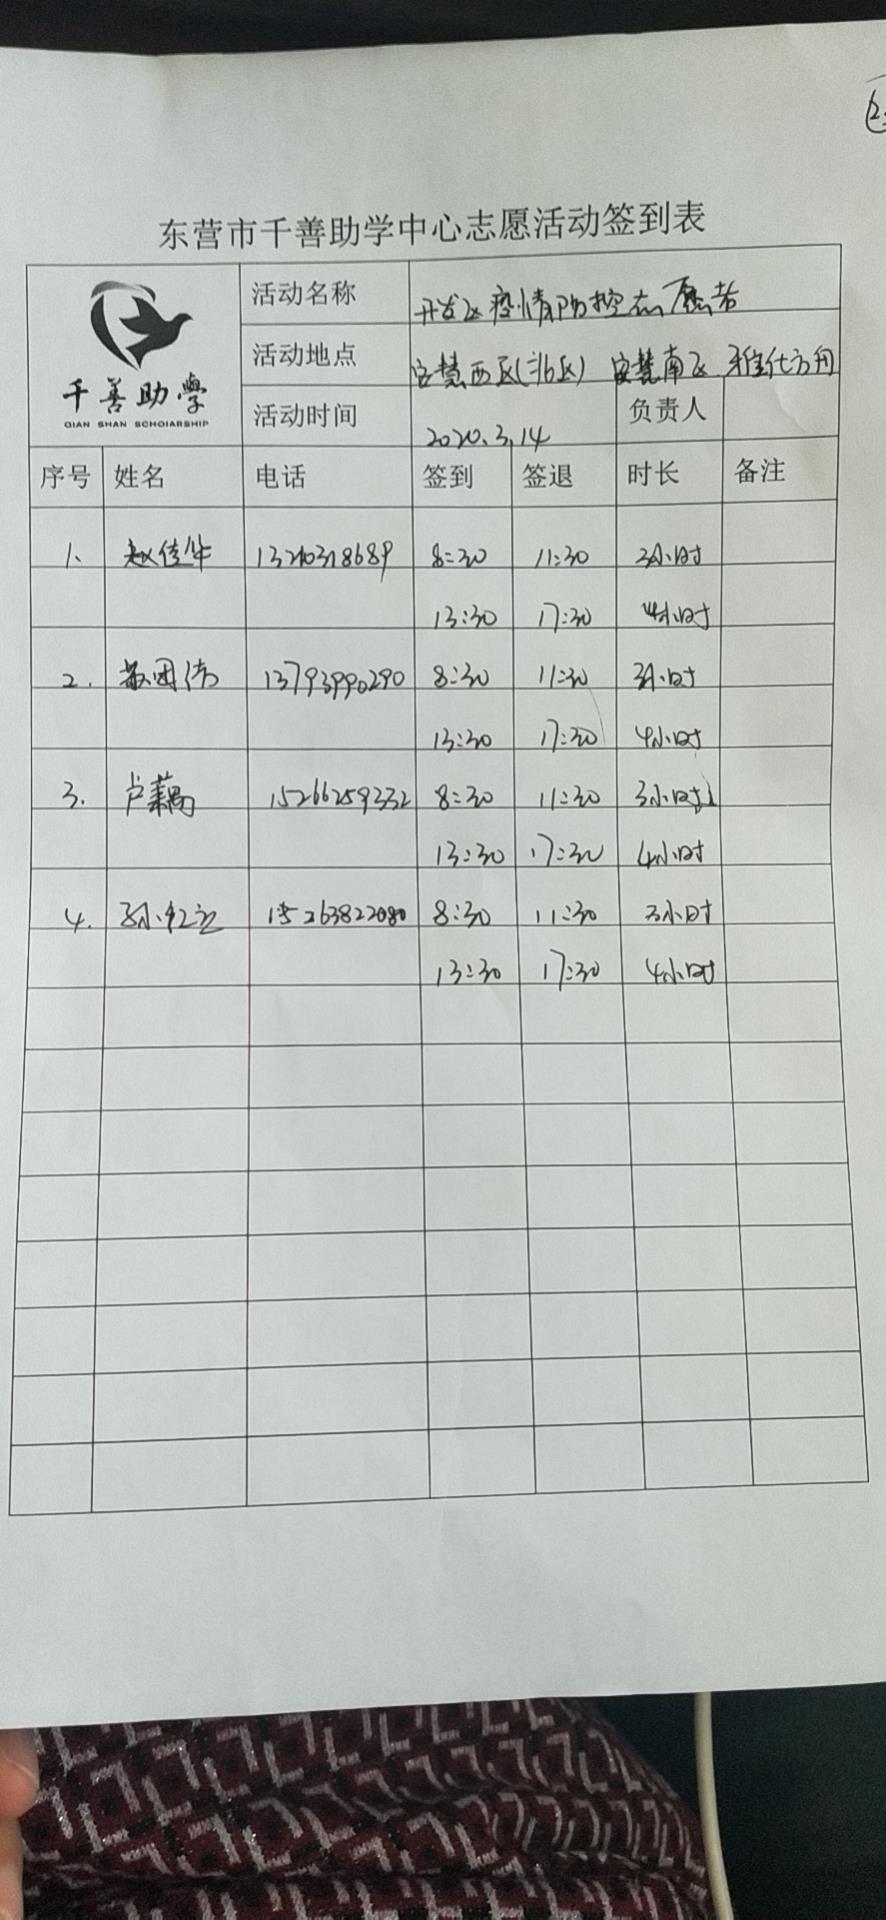 东营市千善助学中心志愿活动签到表
千善助學
QIAN SHAN SCHOIARSHIP
活动名称 开发区疫情防控志愿者
活动地点 安慧西区(北区) 安慧南区
活动时间 2020.3.14 负责人
序号 姓名 电话 签到 签退 时长 备注
1、 赵佳华 13210318689 8:30 11:30 3小时
13:30 17:30 4小时
2. 13793990290 8:30 11:30 3小时
13:30 17:30 4小时
3. 卢藕 15266259332 8:30 11:30 3小时
13:30 17:30 4小时
4. 15263822080 8:30 11:30 3小时
13:30 17:30 4小时